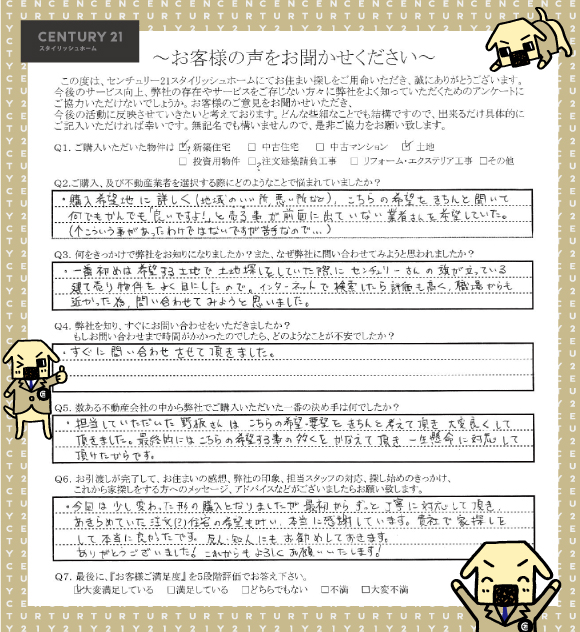 CENTURY 21
スタイリッシュホーム
～お客様の声をお聞かせください～
この度は、センチュリー21スタイリッシュホームにてお住まい探しをご用命いただき、誠にありがとうございます。
今後のサービス向上、弊社の存在やサービスをご存じない方々に弊社をよく知っていただくためのアンケートに
ご協力いただけないでしょうか。お客様のご意見をお聞かせいただき、
今後の活動に反映させていきたいと考えております。どんな些細なことでも結構ですので、出来るだけ具体的に
ご記入いただければ幸いです。無記名でも構いませんので、是非ご協力をお願い致します。
Q1. ご購入いただいた物件は ☑新築住宅 □ 中古住宅 □ 中古マンション ☑ 土地
□ 投資用物件 □注文建築請負工事 □ リフォーム・エクステリア工事 □その他
Q2.ご購入、及び不動産業者を選択する際にどのようなことで悩まれていましたか?
・購入希望地に詳しく(地域のいい所、悪い所など)、こちらの希望をきちんと聞いて
何でもかんでも「良いですよ!」と売る事が前面に出ていない業者さんを希望していた。
(↑こういう事があったわけではないですが苦手なので…)
Q3. 何をきっかけで弊社をお知りになりましたか?また、なぜ弊社に問い合わせてみようと思われましたか?
・一番初めは希望する土地で土地探しをしていた際にセンチュリーさんの旗が立っている
建て売り物件をよく目にしたので。インターネットで検索したら評価も高く、職場からも
近かった為、問い合わせてみようと思いました。
Q4. 弊社を知り、すぐにお問い合わせをいただきましたか?
もしお問い合わせまで時間がかかったのでしたら、どのようなことが不安でしたか?
・すぐに問い合わせさせて頂きました。
Q5. 数ある不動産会社の中から弊社でご購入いただいた一番の決め手は何でしたか?
・担当していただいた 野板さんは こちらの希望・要望をきちんと考えて頂き 大変良くして
頂きました。最終的にはこちらの希望する事の多くをかなえて頂き 一生懸命に対応して
頂けたからです。
Q6. お引渡しが完了して、お住まいの感想、弊社の印象、担当スタッフの対応、探し始めのきっかけ、
これから家探しをする方へのメッセージ、アドバイスなどがございましたらお願い致します。
・今回は少し変わった形の購入となりましたが 最初からずっと丁寧に対応して頂き
あきらめていた注文(?)住宅の希望も叶い、本当に感謝しています。貴社で家探しを
して本当に良かったです。友人・知人にもお勧めしておきます。
ありがとうございました! これからもよろしくお願いいたします!
Q7. 最後に、『お客様ご満足度』を5段階評価でお答え下さい。
☑大変満足している □満足している □どちらでもない □不満 □大変不満